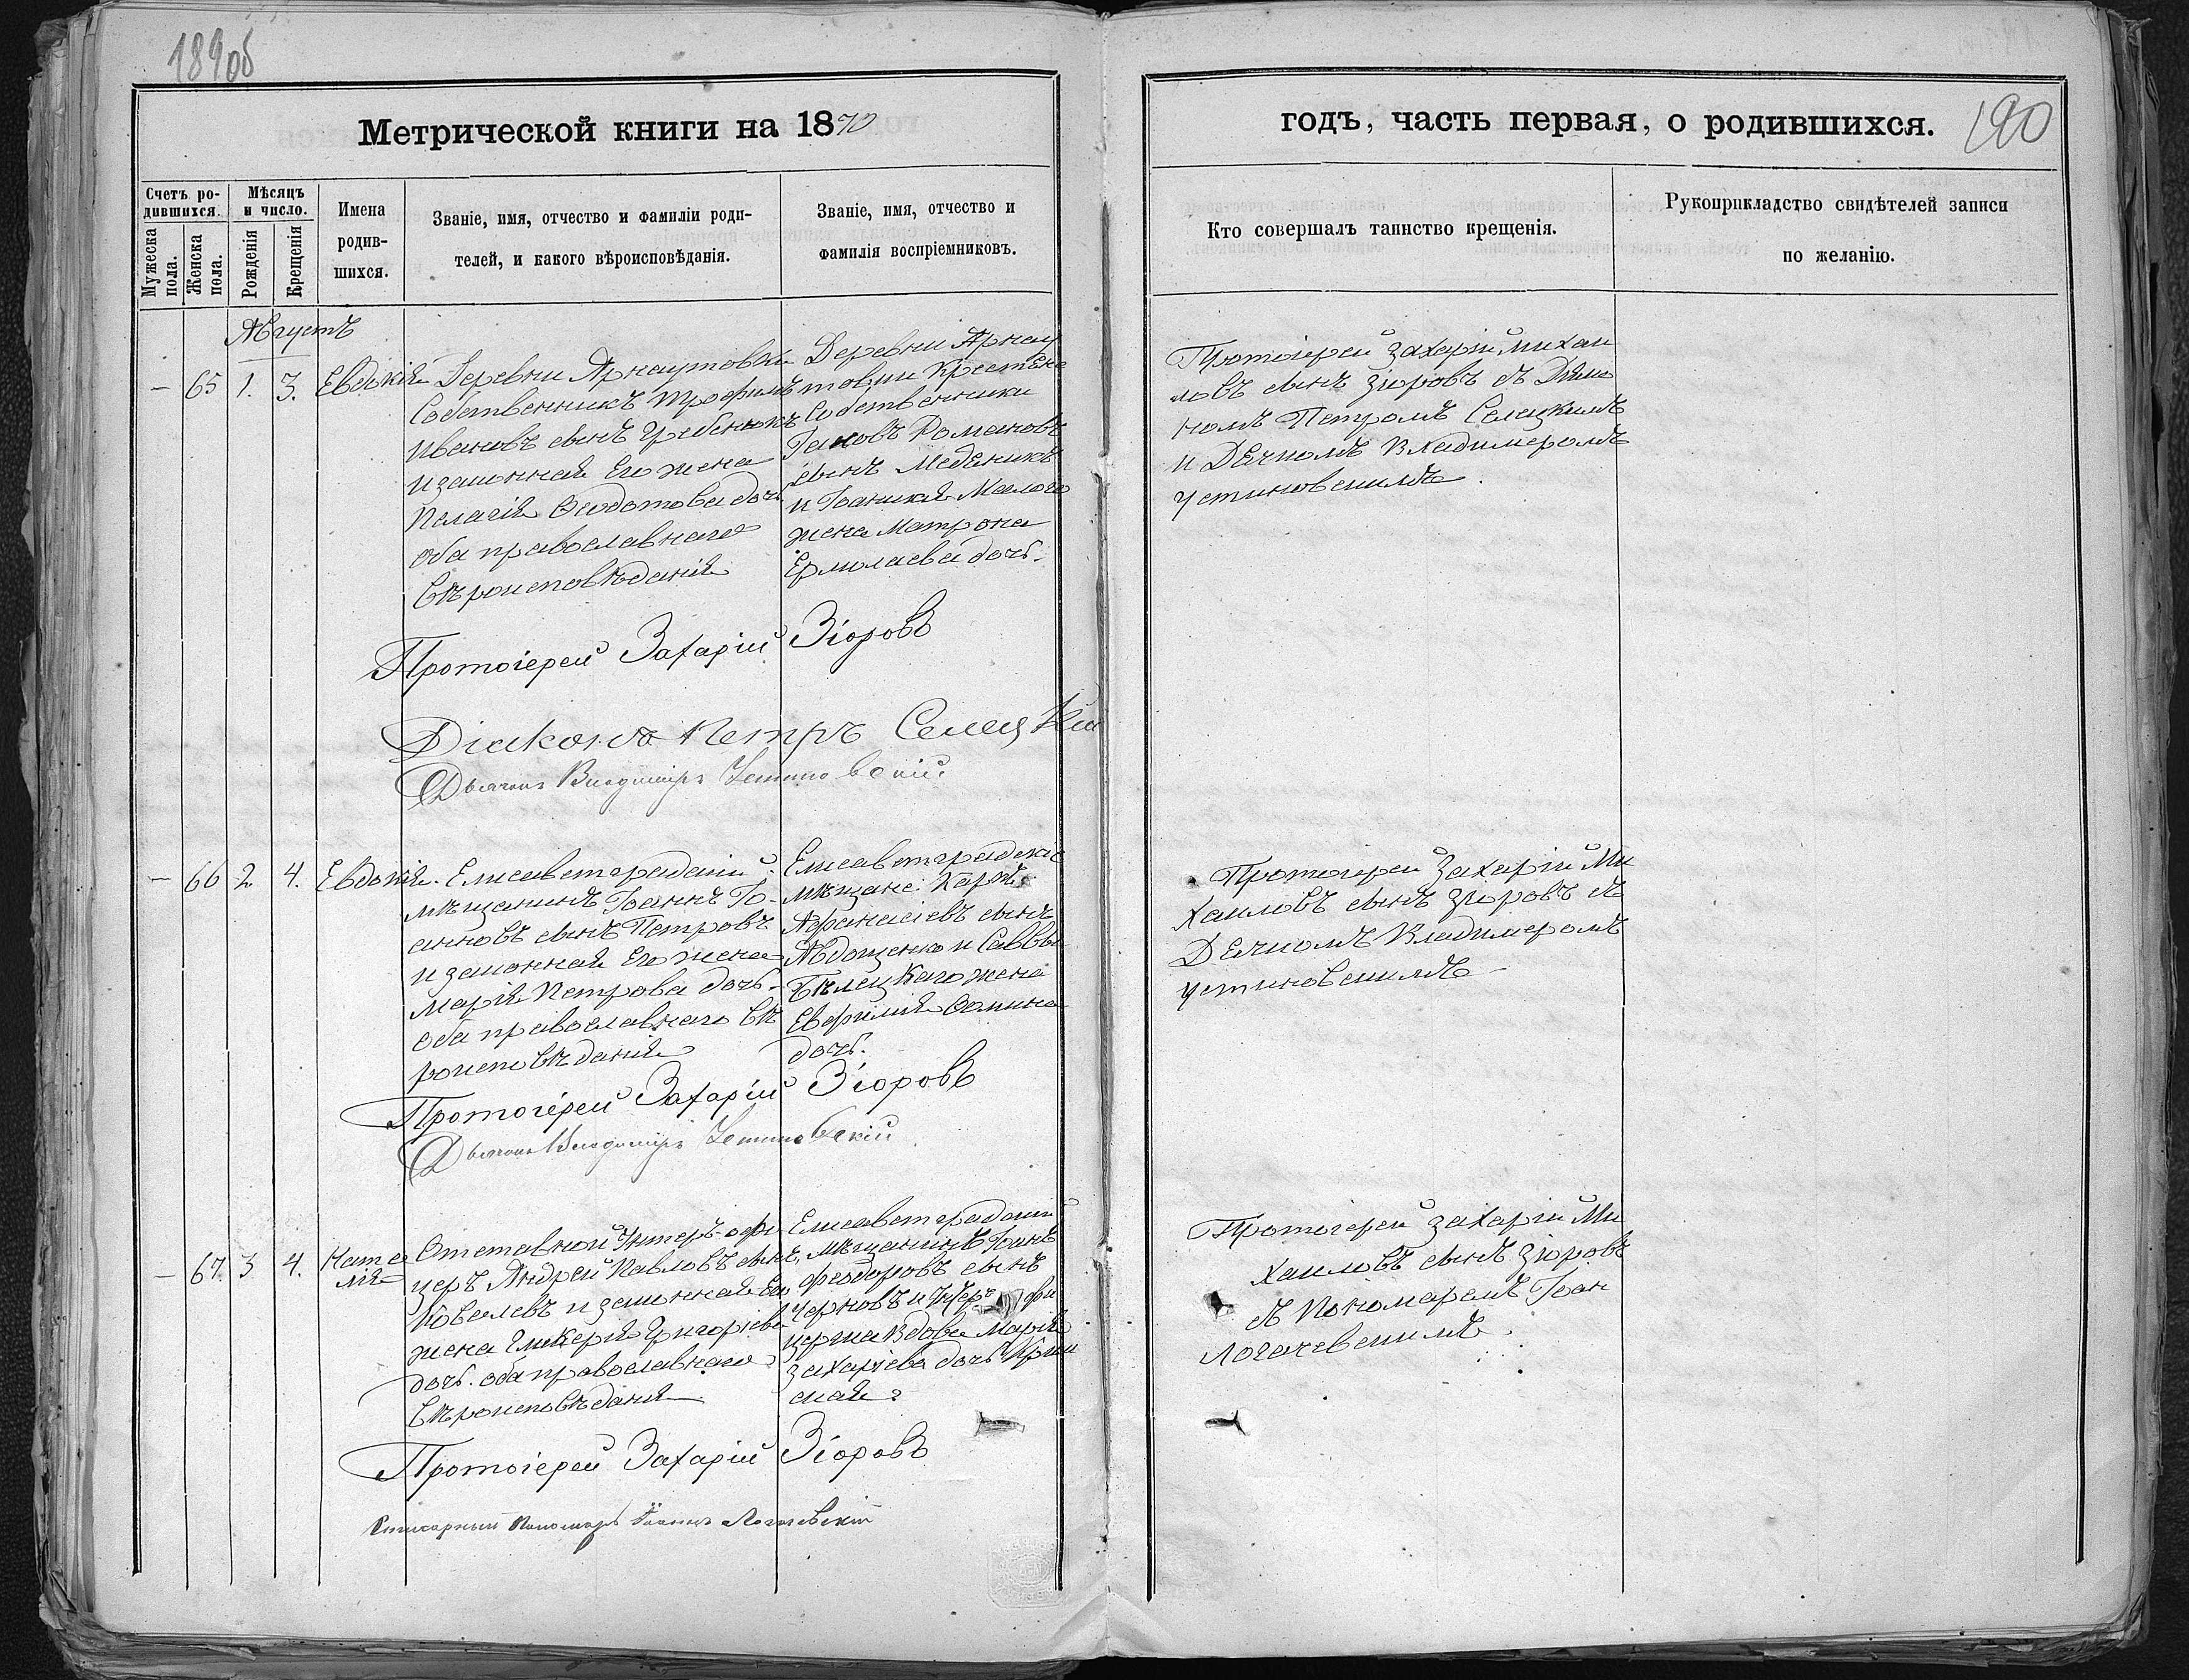 189об
Метрической книги на 1870
годъ, часть первая, о родившихся.
190
Счетъ ро-
дившихся.
Мужеска
пола.
Женска
пола.
Мѣсяцъ
и число.
Рожденія
Крещенія
Имена
родив-
шихся.
Званіе, имя, отчество и фамиліи роди-
телей, и какого вѣроисповѣданія.
Званіе, имя, отчество и
фамилія воспріемниковъ.
Кто совершалъ таинство крещенія.
Рукоприкладство свидѣтелей записи
по желанію.
Августъ
— 65 1. 3. Евдокія
Деревни Арнаутовки
Собственникъ Трофимъ
Ивановъ сынъ Гребенюкъ
и законная Его жена
Пелагія Ѳеодотова дочь
оба православнаго
вѣроисповѣданія
Деревни Арнау
товки Крестьяне
Собственники
Іаковъ Романовъ
сынъ Меденикъ
и Іоанникія Малого
жена Матрона
Ермолаева дочь.
Протоіерей Захарій Михаи
ловъ сынъ Зіоровъ съ Діако
номъ Петромъ Селецкимъ
и Дьячкомъ Владимеромъ
Устиновскимъ.
Протоіерей Захарій Зіоровъ
Діаконъ Петръ Селецкій
Дьячокъ Владиміръ Устиновскій
— 66 2. 4. Евдокія.
Елисаветградскій
мѣщанинъ Іоаннъ Іо-
анновъ сынъ Петровъ
и законная Его жена
Марія Петрова дочь-
оба православнаго вѣ
роисповѣданія
Елисаветградскіе
мѣщане: Карпъ
Афанасіевъ сынъ
Авдощенко и Саввы
Бѣлецкаго жена
Евфимія Ѳомина
дочь.
Протоіерей Захарій Ми
хаиловъ сынъ Зіоровъ съ
Дьячкомъ Владимеромъ
Устиновскимъ
Протоіерей Захарій Зіоровъ
Дьячокъ Владиміръ Устиновскій
— 67. 3 4. Ната
лія
Отставной Унтеръ-офи
церъ Андрей Павловъ сынъ
Ковалевъ и законная Его
жена Гликерія Григоріева
дочь. оба православнаго
вѣроисповѣданія
Елисаветградскій
мѣщанинъ Іоаннъ
Феодоровъ сынъ
Черновъ и Унтеръ офи
церша вдова Марія
Захаріева дочь
ская
Протоіерей Захарій Ми
хаиловъ сынъ Зіоровъ
съ Пономаремъ Іоан
Логачевскимъ.
Протоіерей Захарій Зіоровъ
Пономарь Іоаннъ Логачевскій